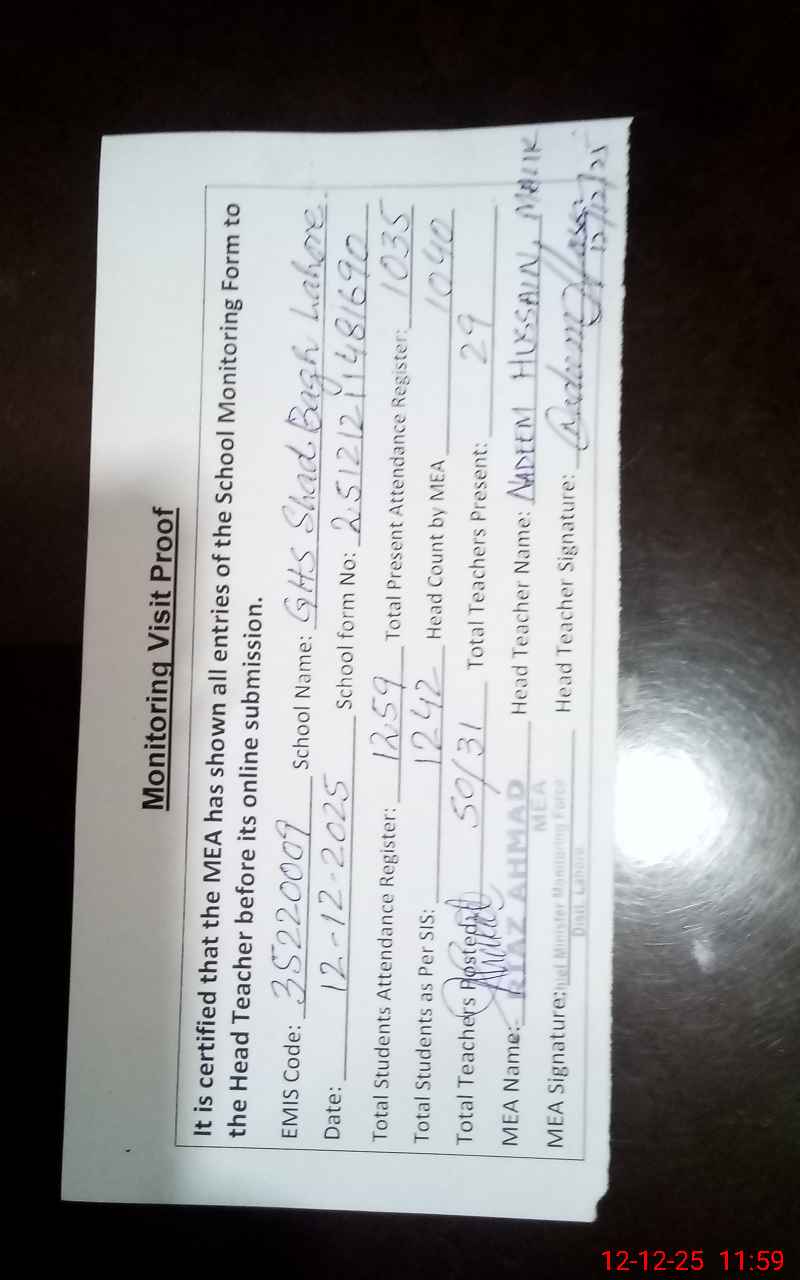 Monitoring Visit Proof
It is certified that the MEA has shown all entries of the School Monitoring Form to
the Head Teacher before its online submission.
EMIS Code: 35220009 School Name: GHS Shad Bagh Lahore
Date: 12-12-2025 School form No: 2512121481690
Total Students Attendance Register: 1259 Total Present Attendance Register: 1035
Total Students as Per SIS: 1242 Head Count by MEA 1040
Total Teachers Posted: 50/31 Total Teachers Present: 29
MEA Name: RIAZ AHMAD Head Teacher Name: NADEEM HUSSAIN, MALIK
MEA
MEA Signature: Chief Minister Monitoring Force Head Teacher Signature:
Distt. Lahore
12/12/25
12-12-25 11:59